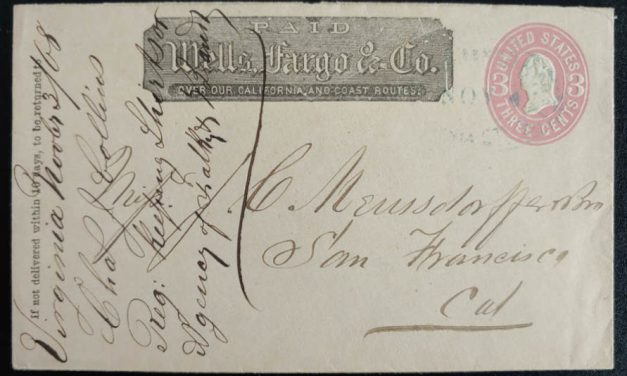 PAID
Wells, Fargo & Co.
OVER OUR CALIFORNIA AND COAST ROUTES.
UNITED STATES
3 3
THREE CENTS
NOV
C. Meussdorffer & Bro
San Francisco
Cal
If not delivered within 10 days, to be returned to
Virginia Novbr 3/68
Cha Collins
Reg: Keeping their
Agency of